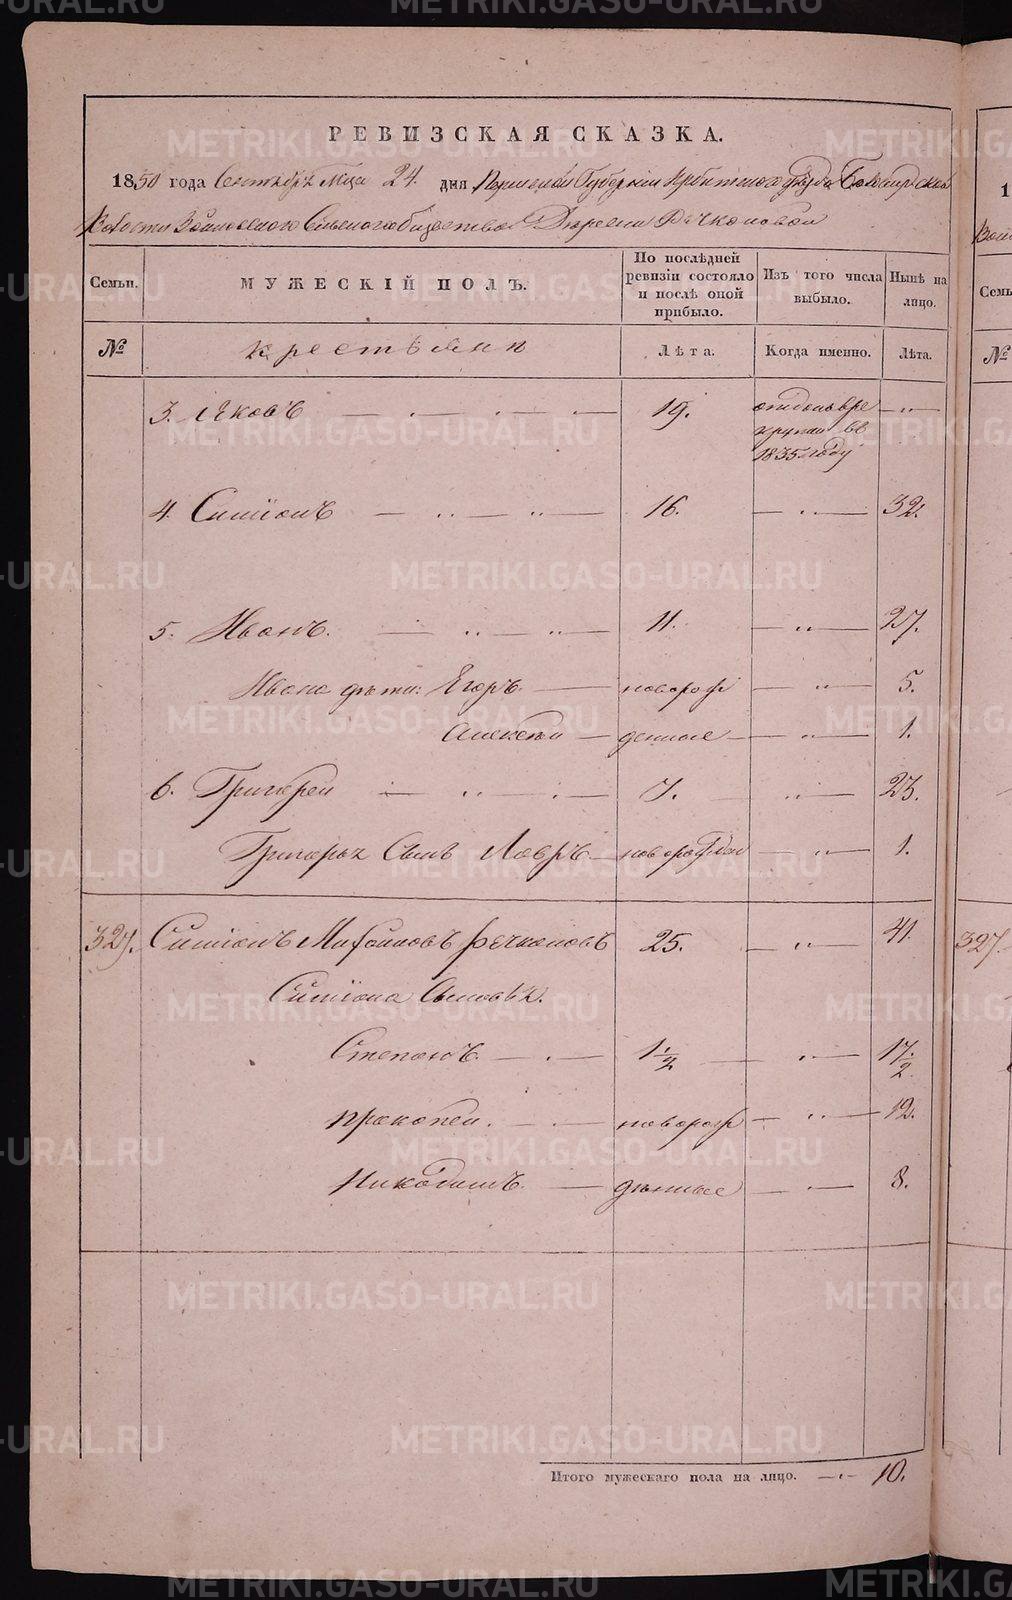 РЕВИЗСКАЯ СКАЗКА.
1850 года Сентября м-ца 24. дня Пермской Губернии Ирбитского уезда Белослудской
Волости Сельского общества Деревни Речкаловой
Семьи.
МУЖЕСКІЙ ПОЛЪ.
По послѣдней ревизіи состояло и послѣ оной прибыло.
Изъ того числа выбыло.
Нынѣ на лицо.
№ крестьяни Лѣта. Когда именно. Лѣта.
3. Яковъ 19. отданъ в рекруты въ 1835 году
4. Симіонъ 16. 32.
5. Иванъ. 11. 27.
Ивана дѣти: Егоръ новорож 5.
Алексѣй денные 1.
6. Григорей 7. 23.
Григорья Сынъ Лавръ новорожден 1.
327. Симіонъ Речкаловъ 25. 41.
Симіона Сыновья.
Степанъ 1 1/2 17 1/2
Прокопей. новорож 12.
Никодимъ денные 8.
Итого мужескаго пола на лицо. 10.
1
Семь
№
327.
METRIKI.GASO-URAL.RU